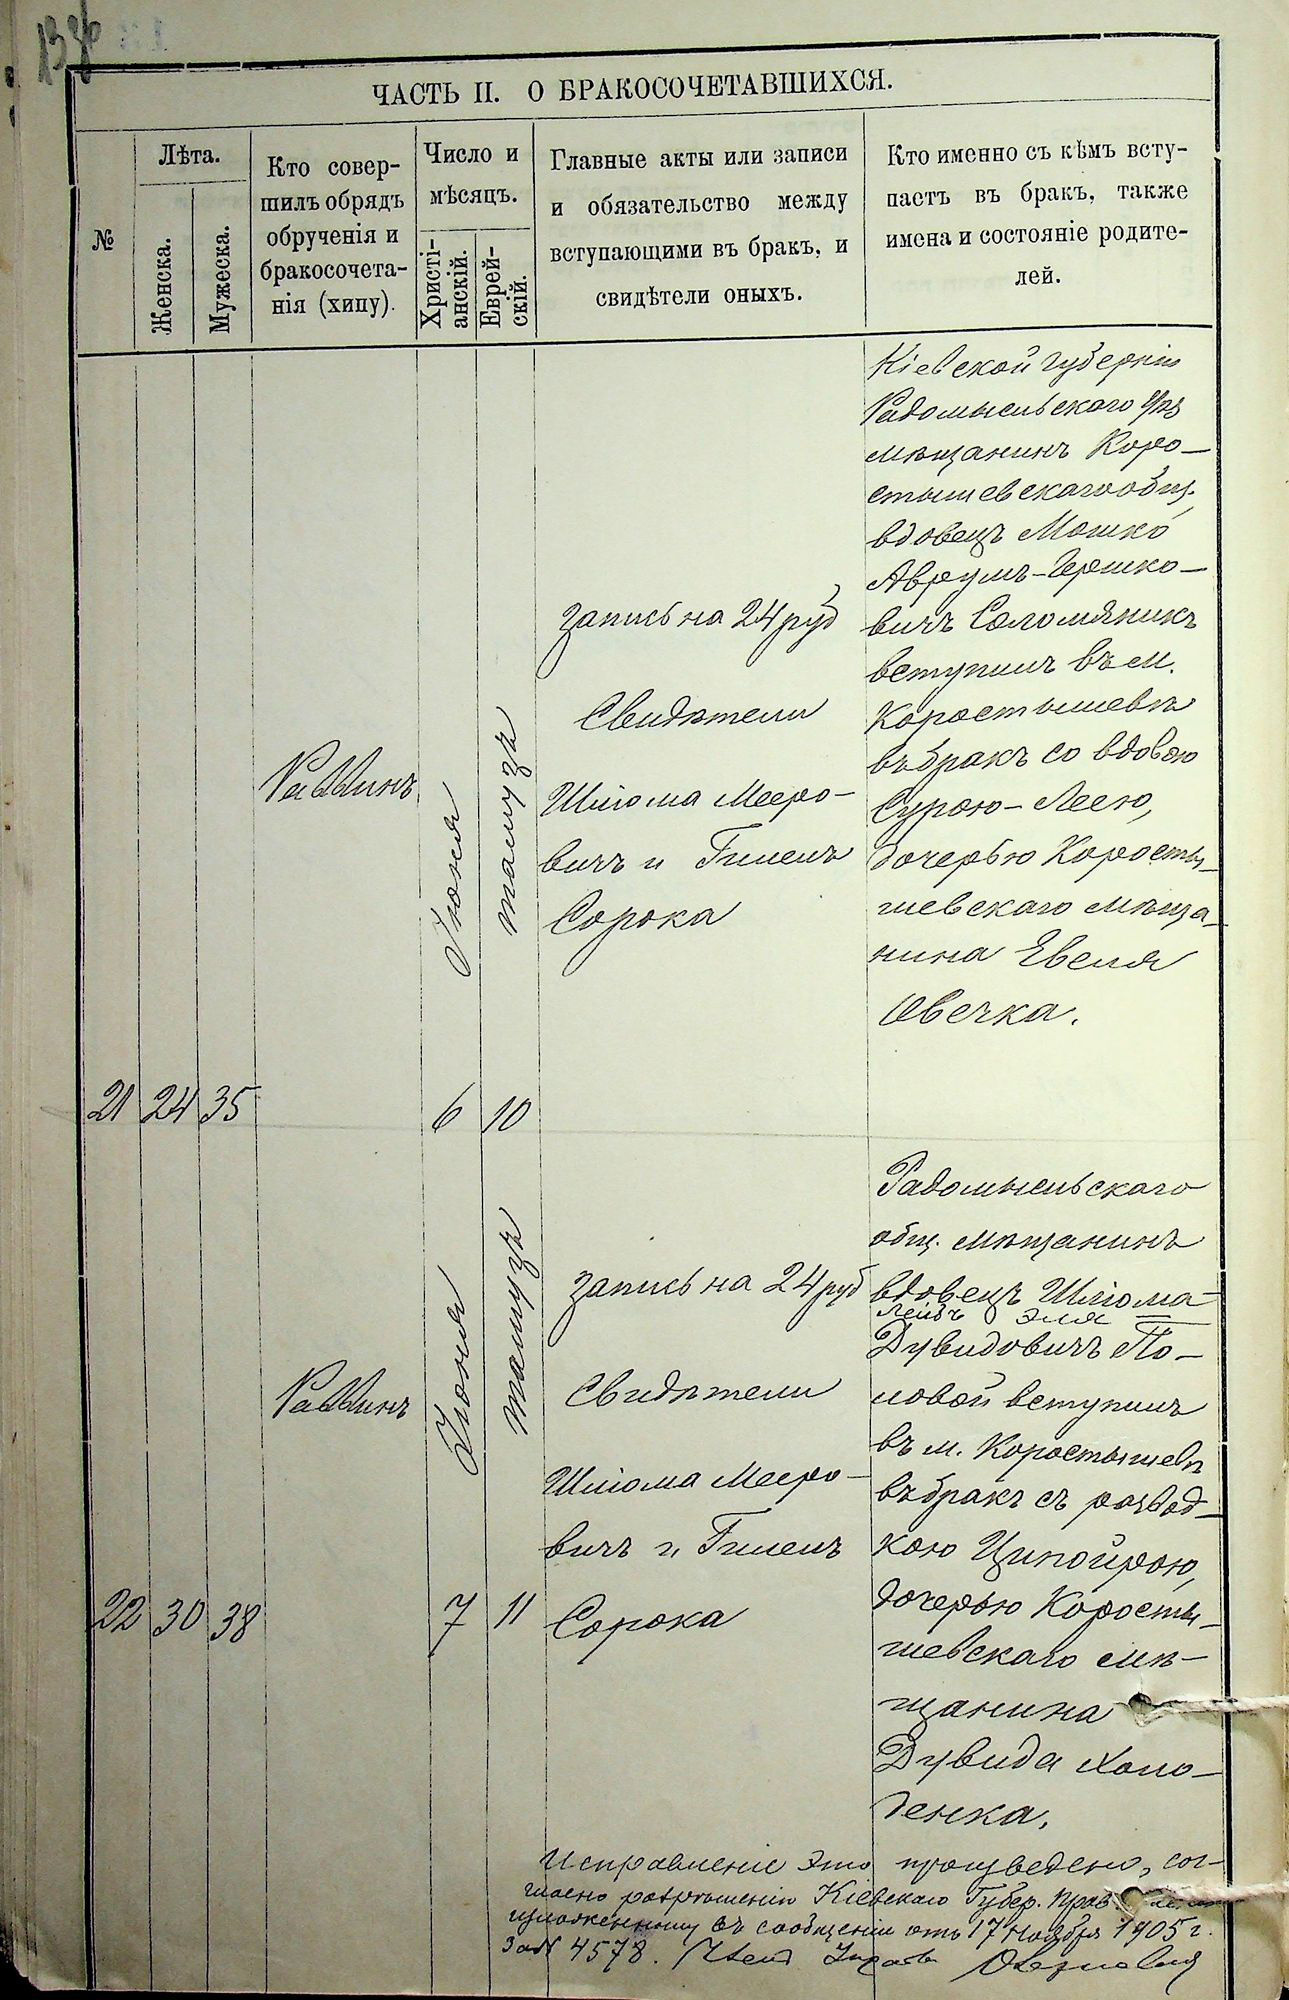 138
ЧАСТЬ II. О БРАКОСОЧЕТАВШИХСЯ.
№
Лѣта.
Женска.
Мужеска.
Кто совер-
шилъ обрядъ
обрученія и
бракосочета-
нія (хипу).
Число и
мѣсяцъ.
Христі-
анскій.
Еврей-
скій.
Главные акты или записи
и обязательство между
вступающими въ бракъ, и
свидѣтели оныхъ.
Кто именно съ кѣмъ всту-
паетъ въ бракъ, также
имена и состояніе родите-
лей.
21
24
35
Раввинъ
Іюня
6
тамузъ
10
Запись на 24 руб
Свидѣтели
Шлома Мееро-
вичъ и Гилелъ
Сорока
Кіевской губерніи
Радомысльскаго
мѣщанинъ Коро-
стышевскаго общ.
вдовецъ Мошко
Аврумъ-Гершко-
вичъ Соломяникъ
вступилъ въ м.
Коростышевѣ
въ бракъ со вдовою
Сурою-Леею,
дочерью Коросты-
шевскаго мѣща-
нина Евеля
Овечка.
22
30
38
Раввинъ
Іюня
7
тамузъ
11
Запись на 24 руб
Свидѣтели
Шлома Мееро-
вичъ и Гилелъ
Сорока
Радомысльскаго
общ. мѣщанинъ
вдовецъ Шлома-
Лейбъ Эля
Дувидовичъ По-
ловой вступилъ
въ м. Коростышевѣ
въ бракъ съ развод-
кою Ципойрою,
дочерью Коросты-
шевскаго мѣ-
щанина
Дувида Холо-
денка.
Исправленіе это произведено, сог-
ласно разрѣшенію Кіевскаго Губер. Прав
изложенному въ сообщеніи отъ 17 Ноября 1905 г.
за № 4578.